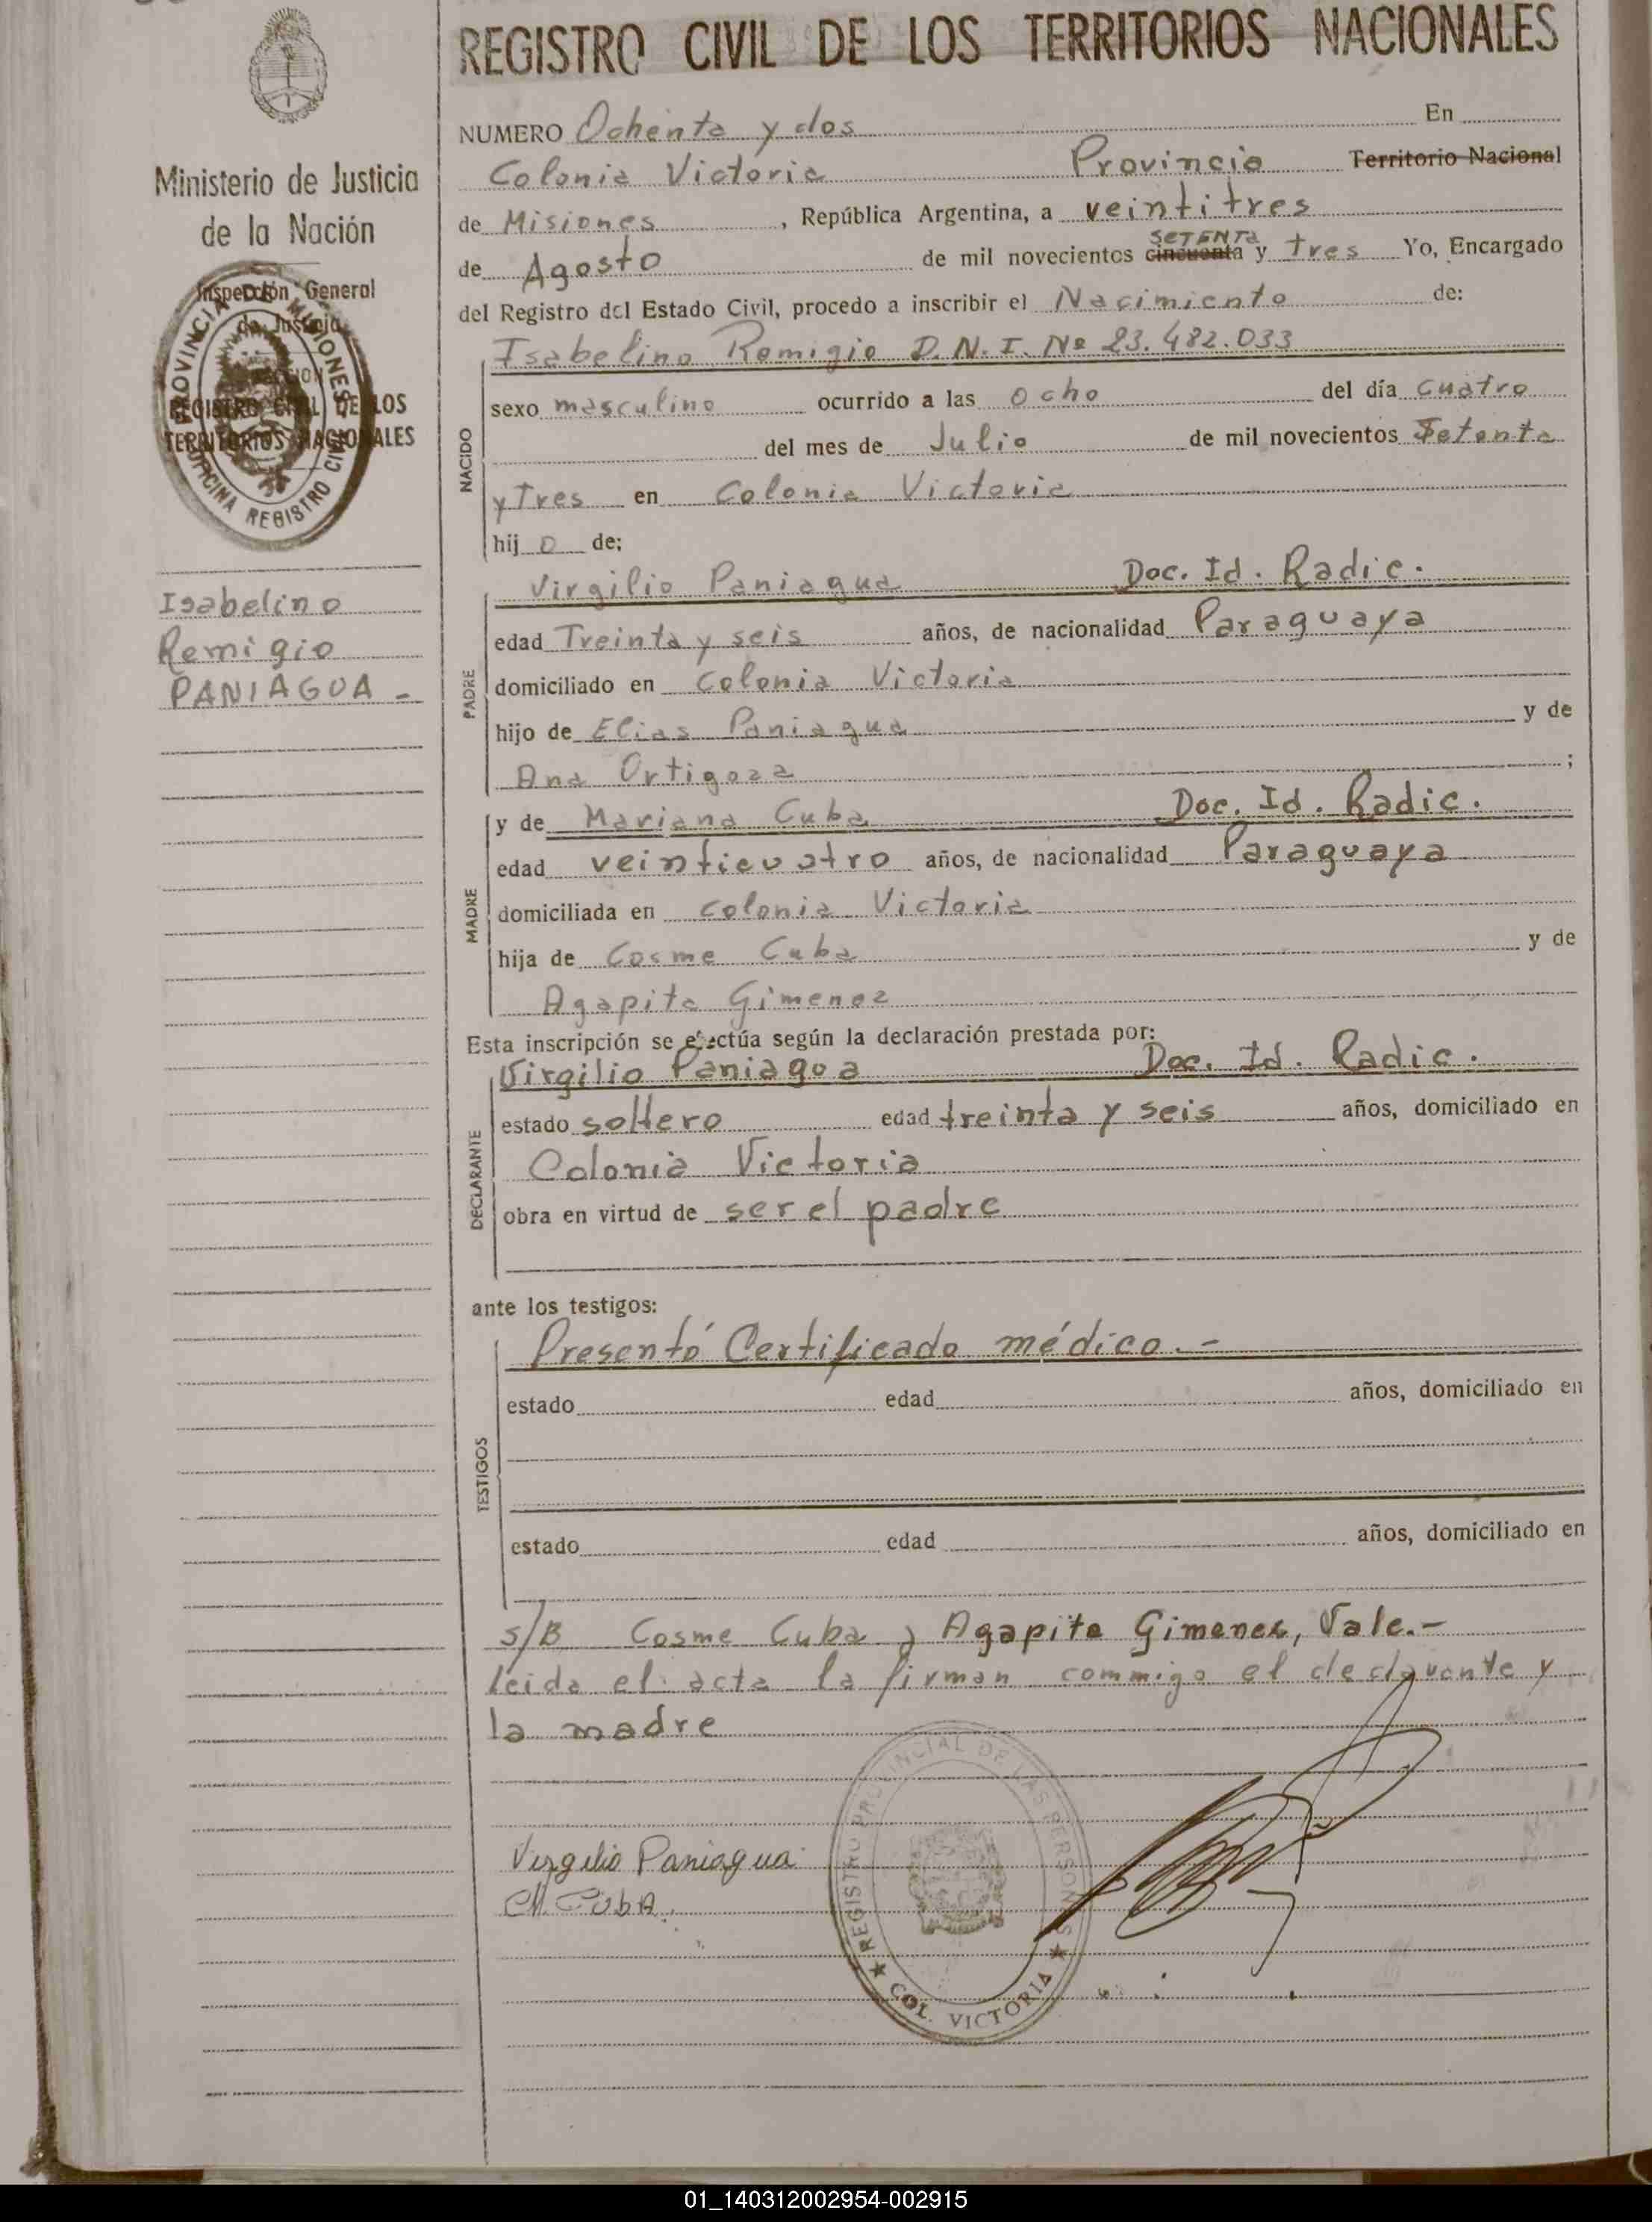 REGISTRO CIVIL DE LOS TERRITORIOS NACIONALES
Ministerio de Justicia
de la Nación
Inspección General
de Justicia
REGISTRO CIVIL DE LOS
TERRITORIOS NACIONALES
PROVINCIA DE MISIONES
OFICINA REGISTRO CIVIL
Isabelino
Remigio
PANIAGUA -
NUMERO Ochenta y dos En
Colonia Victoria Provincia Territorio Nacional
de Misiones, República Argentina, a veintitres
de Agosto de mil novecientos cincuenta SETENTA y tres Yo, Encargado
del Registro del Estado Civil, procedo a inscribir el Nacimiento de:
NACIDO
Isabelino Remigio D.N.I. Nº 23.482.033
sexo masculino ocurrido a las ocho del día cuatro
del mes de Julio de mil novecientos Setenta
y Tres en Colonia Victoria
hij o de;
PADRE
Virgilio Paniagua Doc. Id. Radic.
edad Treinta y seis años, de nacionalidad Paraguaya
domiciliado en Colonia Victoria
hijo de Elias Paniagua y de
Ana Ortigoza ;
MADRE
y de Mariana Cuba Doc. Id. Radic.
edad veinticuatro años, de nacionalidad Paraguaya
domiciliada en Colonia Victoria
hija de Cosme Cuba y de
Agapita Gimenez
Esta inscripción se efectúa según la declaración prestada por:
DECLARANTE
Virgilio Paniagua Doc. Id. Radic.
estado soltero edad treinta y seis años, domiciliado en
Colonia Victoria
obra en virtud de ser el padre
ante los testigos:
TESTIGOS
Presentó Certificado médico.-
estado edad años, domiciliado en
estado edad años, domiciliado en
s/B Cosme Cuba y Agapita Gimenez, Vale.-
leida el acta la firman commigo el declarante y
la madre
Virgilio Paniagua
M. CubA.
REGISTRO PROVINCIAL DE LAS PERSONAS
COL. VICTORIA
01_140312002954-002915